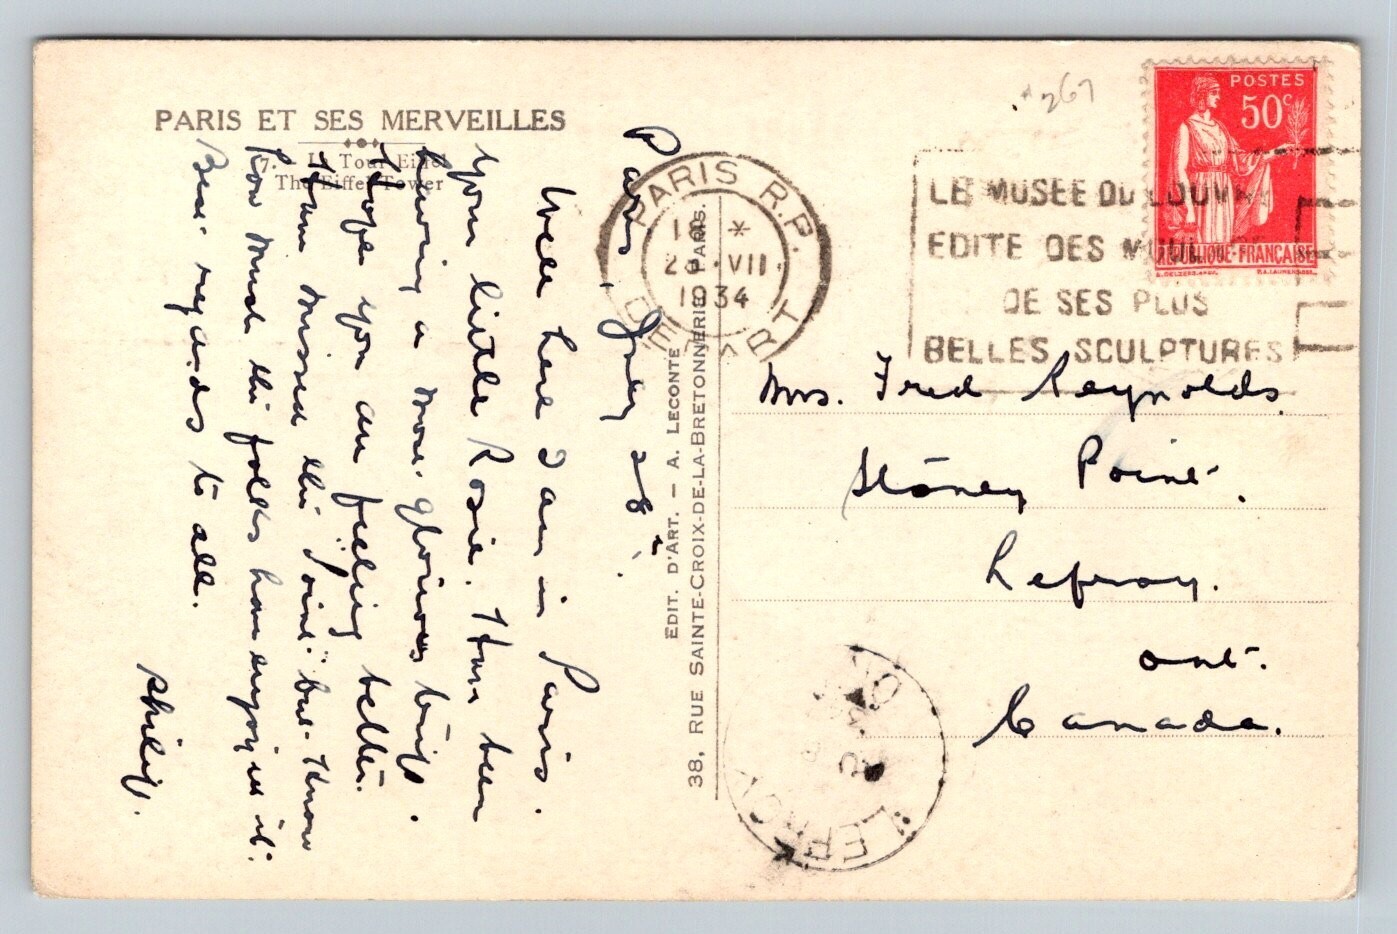 PARIS ET SES MERVEILLES
7. - La Tour Eiffel
The Eiffel Tower
Paris, July 28th.
Well here I am in Paris.
you little Rosie. Have been
having a most glorious trip.
Hope you are feeling better.
Have missed the Point but know
how much the folks have enjoyed it.
Best regards to all.
Philip.
EDIT. D'ART. — A. LECONTE
38, RUE SAINTE-CROIX-DE-LA-BRETONNERIE PARIS.
PARIS R.P.
DEPART
VII
1934
LE MUSÉE DU LOUVRE
EDITE DES MOULAGES
DE SES PLUS
BELLES SCULPTURES
POSTES
50c
RÉPUBLIQUE-FRANÇAISE
Mrs. Fred Reynolds
Stoney Point.
Lefroy.
Ont.
Canada.
LEFROY